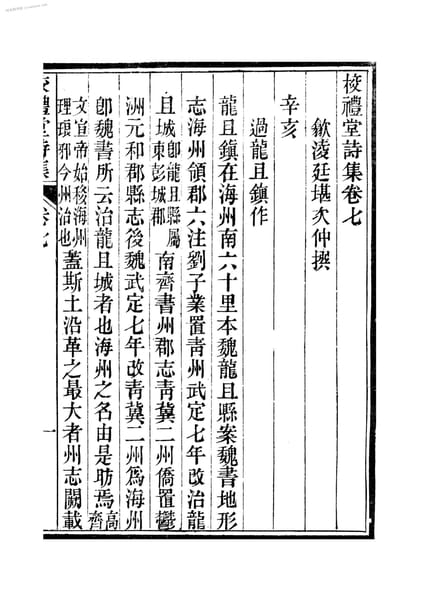 校禮堂詩集卷七
歙淩廷堪次仲撰
辛亥
過龍且鎮作
龍且鎮在海州南六十里本魏龍且縣案魏書地形
志海州領郡六注劉子業置靑州武定七年改治龍
且城卽龍且縣屬東彭城郡南齊書州郡志靑冀二州僑置鬱
洲元和郡縣志後魏武定七年改靑冀二州爲海州
卽魏書所云治龍且城者也海州之名由是昉焉高齊
文宣帝始移海州理琅邪今州治也蓋斯土沿革之最大者州志闕載
校禮堂詩集
卷七
一